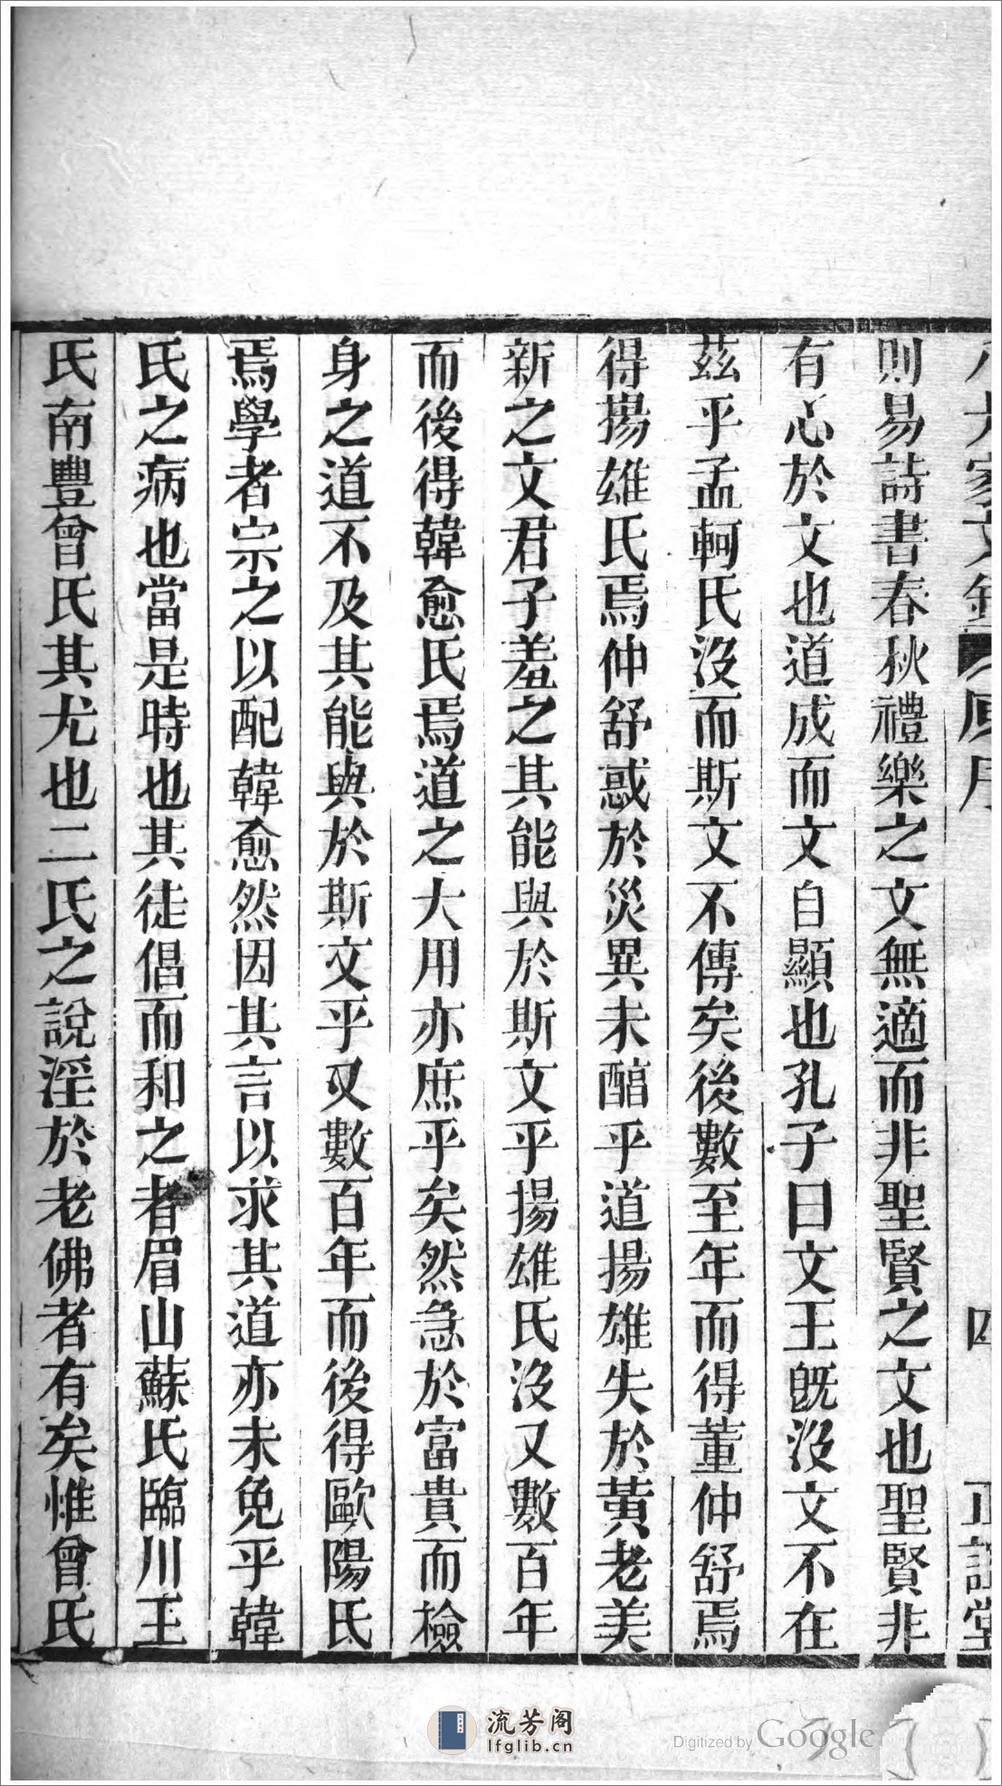 則易詩書春秋禮樂之文無適而非聖賢之文也聖賢非
有心於文也道成而文自顯也孔子曰文王既沒文不在
茲乎孟軻氏沒而斯文不傳矣後數至年而得董仲舒焉
得揚雄氏焉仲舒惑於災異未醇乎道揚雄失於黃老美
新之文君子羞之其能與於斯文乎揚雄氏沒又數百年
而後得韓愈氏焉道之大用亦庶乎矣然急於富貴而檢
身之道不及其能與於斯文乎又數百年而後得歐陽氏
焉學者宗之以配韓愈然因其言以求其道亦未免乎韓
氏之病也當是時也其徒倡而和之者眉山蘇氏臨川王
氏南豐曾氏其尤也二氏之說淫於老佛者有矣惟曾氏
流芳阁
lfglib.cn
Digitized by Google